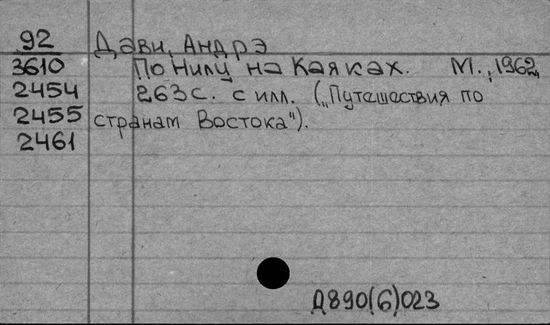 92 Дави, Андрэ
3610 По Нилу на Каяках. М., 1962,
2454 263с. с илл. („Путешествия по
2455 странам Востока").
2461
Д890(6)023